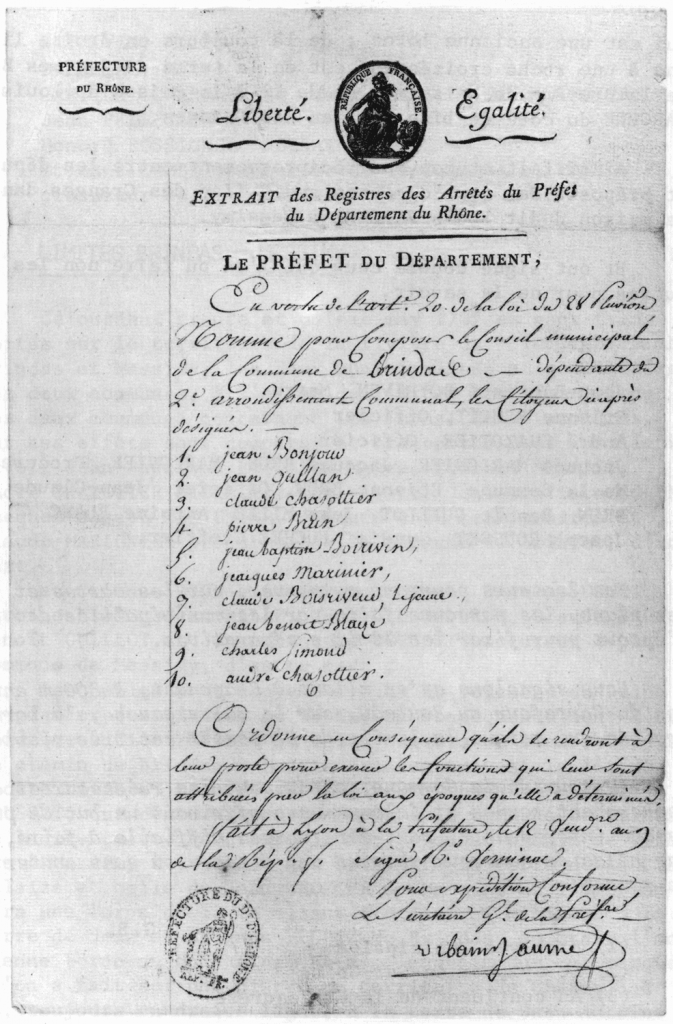 PRÉFECTURE
DU RHÔNE.
Liberté.
RÉPUBLIQUE FRANÇAISE.
Egalité.
EXTRAIT des Registres des Arrêtés du Préfet
du Département du Rhône.
LE PRÉFET DU DÉPARTEMENT,
En vertu de l'art.e 20. de la loi du 28 Pluviôse
Nomme pour Composer le Conseil municipal
de la Commune de Brindade — dépendante du
2.e arrondissement Communal, les Citoyens ciaprès
désignés. —
1. jean Bonjour
2. jean Guillan
3. claude chasottier
4. pierre Brun
5. jean baptiste Boirivin,
6. jacques Marinier,
7. claude Boisriveux, Lejeune.,
8. jean benoit Blaye
9. charles Simond
10. andré chasottier.
Ordonne en Conséquence qu'ils se rendront à
leur poste pour exercer les fonctions qui leur sont
attribuées par la loi aux époques qu'elle a déterminée,
fait à Lyon à la Préfecture, le 12 Vend.re an 9
de la Rép. f. Signé R.d Verninac,
Pour expédition Conforme
Le Secrétaire G.l de la Préf.re
urbain Jaume
PREFECTURE DU D.T DU RHONE
REP. FR.